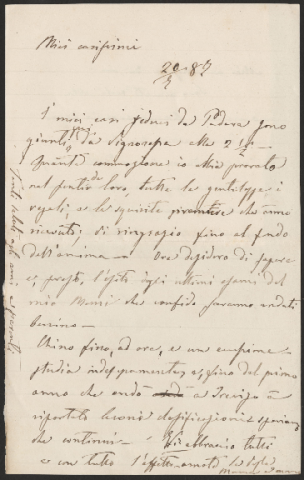 Miei carissimi
20/3 87
I miei cari reduci da Padova sono
giunti da Signoressa alle 2 1/2 —
Quanta commozione io abbia provato
nel sentir da loro, tutte le gentilezze i
regali, e le squisite che anno
ricevuti, vi ringrazio fino al fondo
dell'anima — Ora desidero di sapere
e, presto, l'esito degli ultimi esami del
mio che confido saranno andati
benino —
Chino fino, ad ora, e un
studia indefessamente, e fino dal primo
anno che andò a Treviso à
riportato buoni classificazioni e speriamo
che continui — Vi abbraccio tutti
e con tutto l'affetto